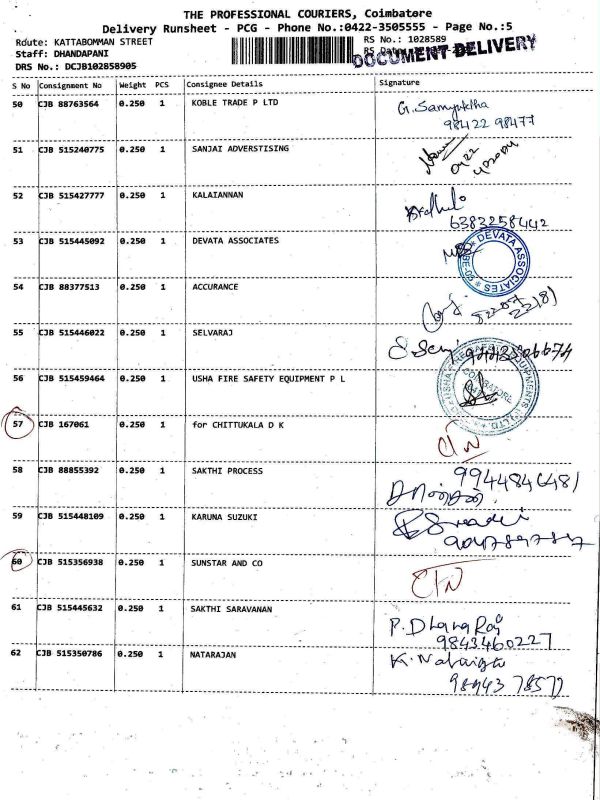 THE PROFESSIONAL COURIERS, Coimbatore
Delivery Runsheet - PCG - Phone No.:0422-3505555 - Page No.:5
Rdute: KATTABOMMAN STREET
RS No.: 1028589
Staff: DHANDAPANI
RS Date:
DOCUMENT DELIVERY
DRS No.: DCJB102858905
S No Consignment No Weight PCS Consignee Details Signature
50 CJB 88763564 0.250 1 KOBLE TRADE P LTD G. Samyuktha
98422 98477
51 CJB 515240775 0.250 1 SANJAI ADVERSTISING
0422
52 CJB 515427777 0.250 1 KALAIANNAN
6383258442
53 CJB 515445092 0.250 1 DEVATA ASSOCIATES
DEVATA ASSOCIATES
54 CJB 88377513 0.250 1 ACCURANCE
55 CJB 515446022 0.250 1 SELVARAJ
56 CJB 515459464 0.250 1 USHA FIRE SAFETY EQUIPMENT P L
COIMBATORE
57 CJB 167061 0.250 1 for CHITTUKALA D K
58 CJB 88855392 0.250 1 SAKTHI PROCESS 9944846481
59 CJB 515448109 0.250 1 KARUNA SUZUKI
60 CJB 515356938 0.250 1 SUNSTAR AND CO
61 CJB 515445632 0.250 1 SAKTHI SARAVANAN P. Dhana Raj
9843460227
62 CJB 515350786 0.250 1 NATARAJAN